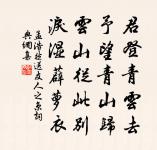 君登青雲去
予望青山歸
雲山從此別
淚濕薜蘿衣
孟浩然送友人之京詞
典調寡